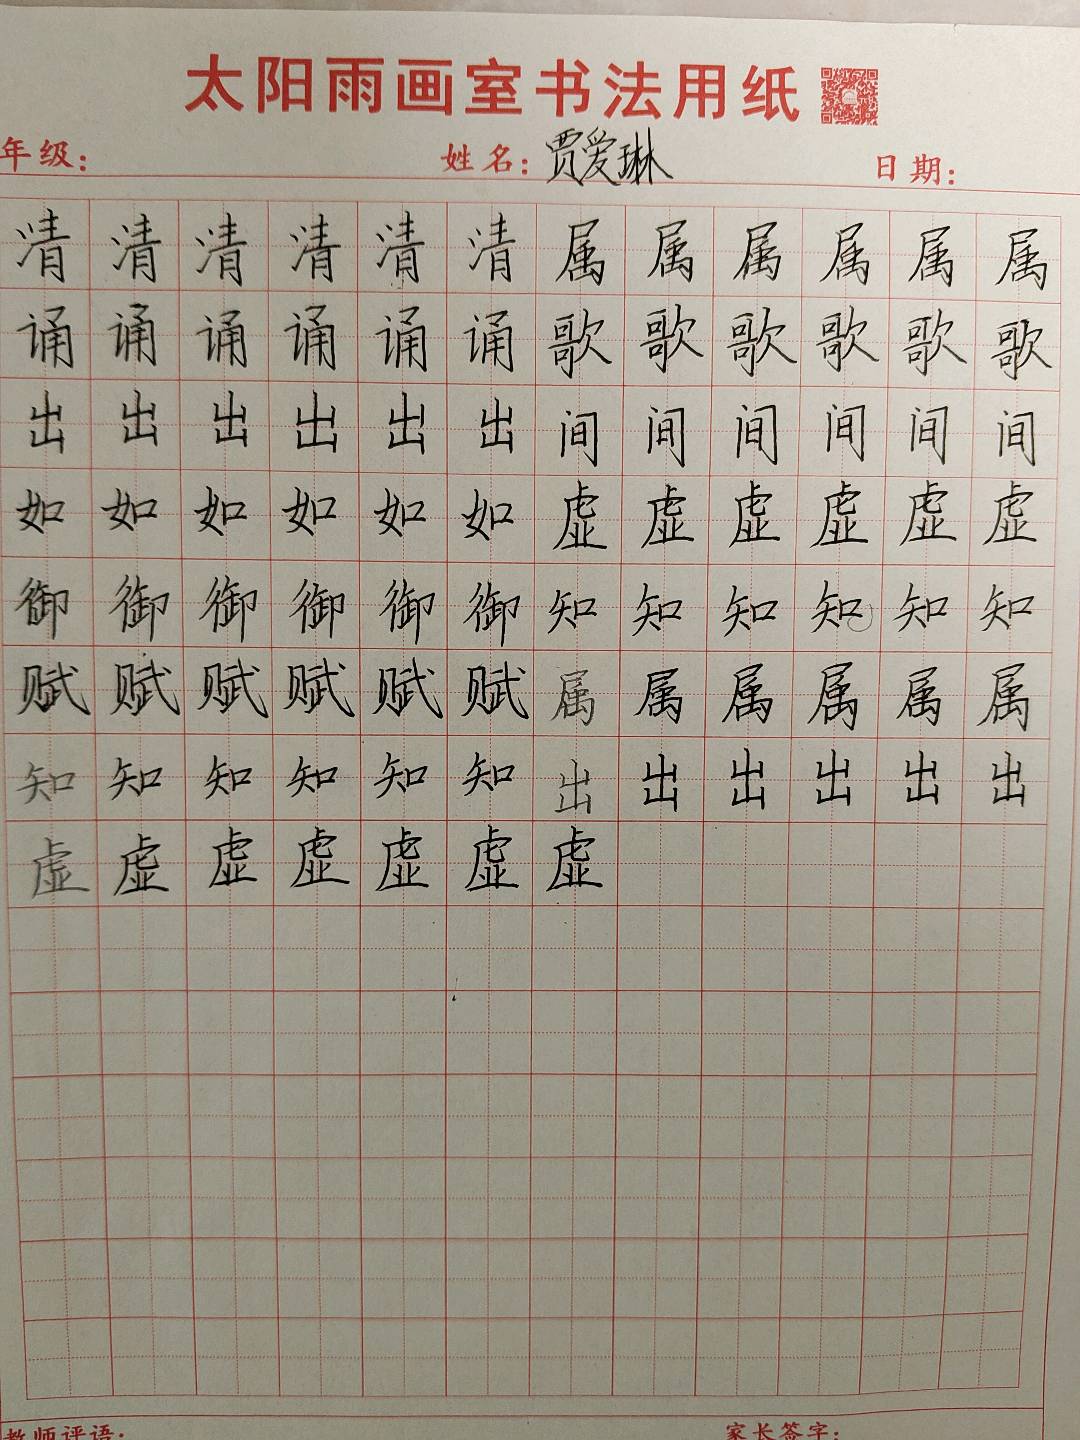 太阳雨画室书法用纸
年级： 姓名：贾爱琳 日期：
清清清清清清属属属属属属
诵诵诵诵诵诵歌歌歌歌歌歌
出出出出出出间间间间间间
如如如如如如虚虚虚虚虚虚
御御御御御御知知知知知知
赋赋赋赋赋赋属属属属属属
知知知知知知出出出出出出
虚虚虚虚虚虚虚
教师评语： 家长签字：